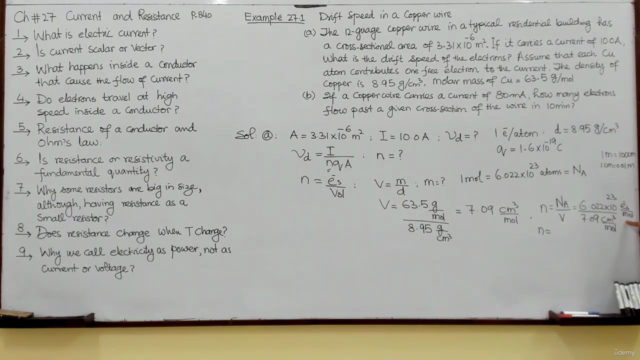 Ch#27 Current and Resistance P.840
1, What is electric current?
2, Is current Scalar or Vector?
3, What happens inside a conductor
that cause the flow of current?
4, Do electrons travel at high
speed inside a conductor?
5, Resistance of a conductor and
Ohm's law.
6, Is resistance or resistivity a
fundamental quantity?
7, Why some resistors are big in size,
although, having resistance as a
small resistor?
8, Does resistance change when T change?
9, Why we call electricity as power, not as
current or voltage?
Example 27.1 Drift Speed in a Copper wire
(a) The 12-guage copper wire in a typical residential building has
a cross-sectional area of 3.31×10⁻⁶ m². If it carries a current of 10.0A,
What is the drift speed of the electrons? Assume that each Cu
atom contributes one free electron to the current. The density of
Copper is 8.95 g/cm³. molar mass of Cu = 63.5 g/mol
(b) If a Copper wire carries a current of 80.0mA, How many electrons
flow past a given cross-section of the wire in 10min?
Sol. (a) A = 3.31×10⁻⁶ m² ; I = 10.0A ; Vd = ? 1 ē/atom ; d = 8.95 g/cm³
q = 1.6×10⁻¹⁹ C
Vd = I/nqA ; n = ?
1m = 100cm
n = ēs/Vol ; V = m/d ; m = ? 1mol = 6.022×10²³ atoms = NA
V = 63.5 g/mol / 8.95 g/cm³ = 7.09 cm³/mol , n = NA/V = 6.022×10²³ ēs/mol / 7.09 cm³/mol
n =
Udemy